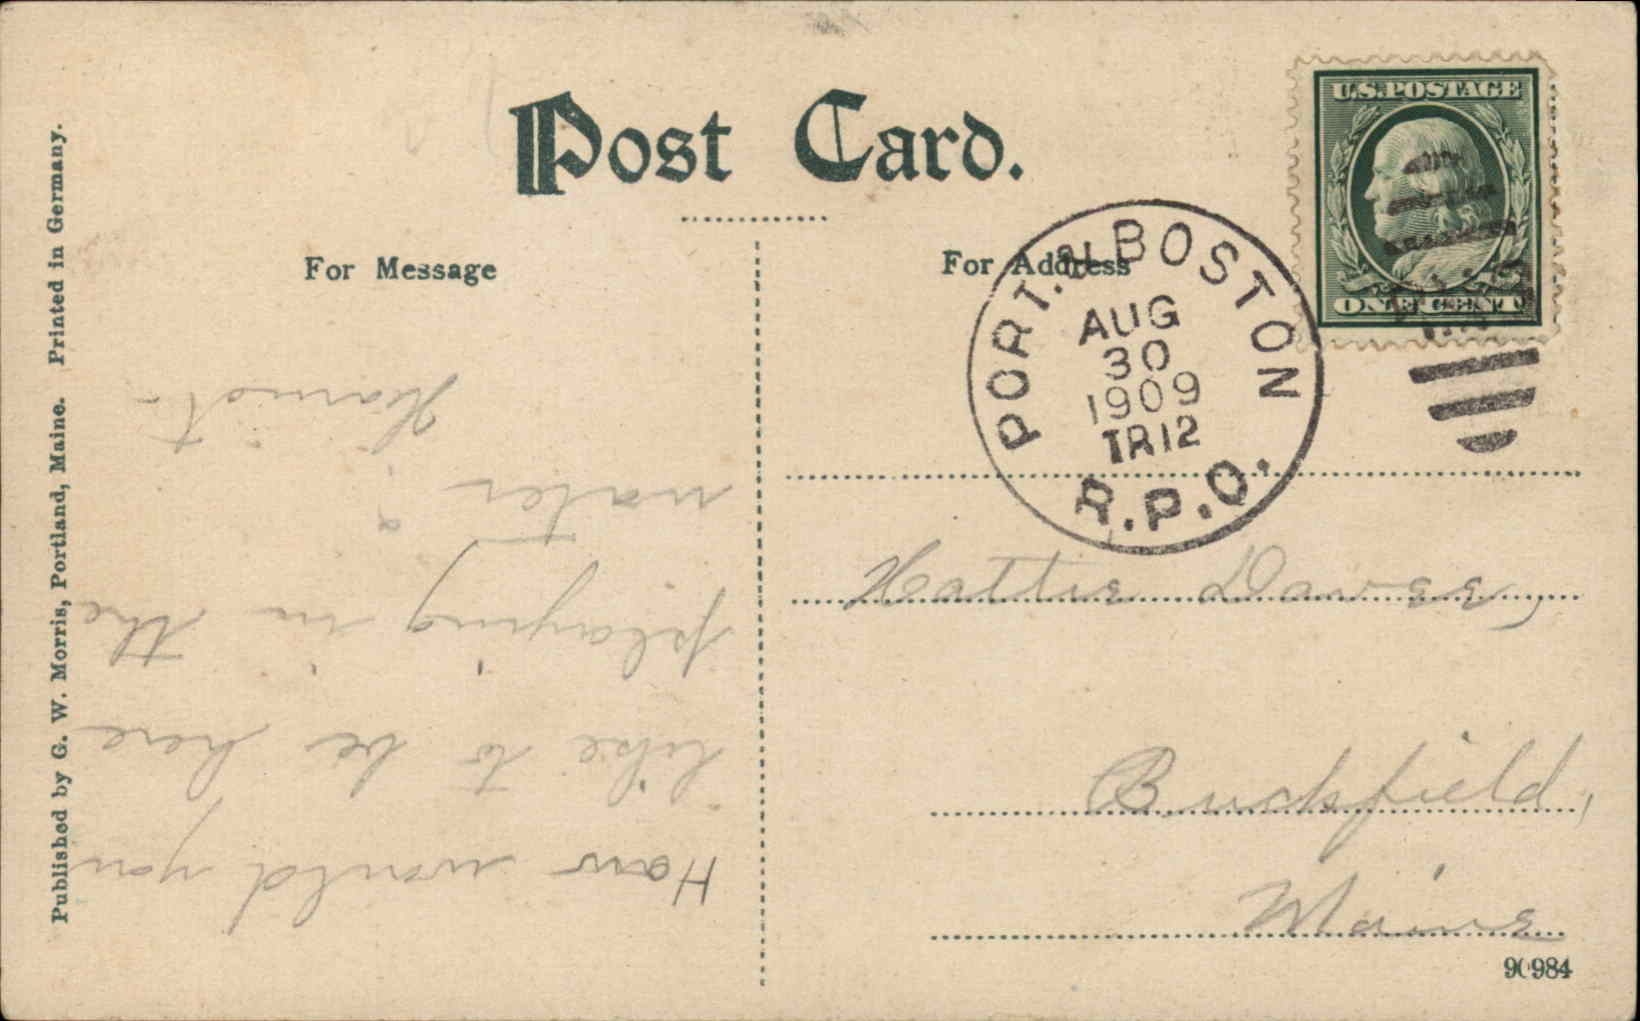 Post Card.
For Message
For Address
U.S. POSTAGE
ONE CENT
PORT. & BOSTON
AUG
30
1909
TR 12
R.P.O.
How would you
like to be here
playing in the
water?
Harriet-
Hattie Dawes,
Buckfield,
Maine
90984
Published by G. W. Morris, Portland, Maine. Printed in Germany.